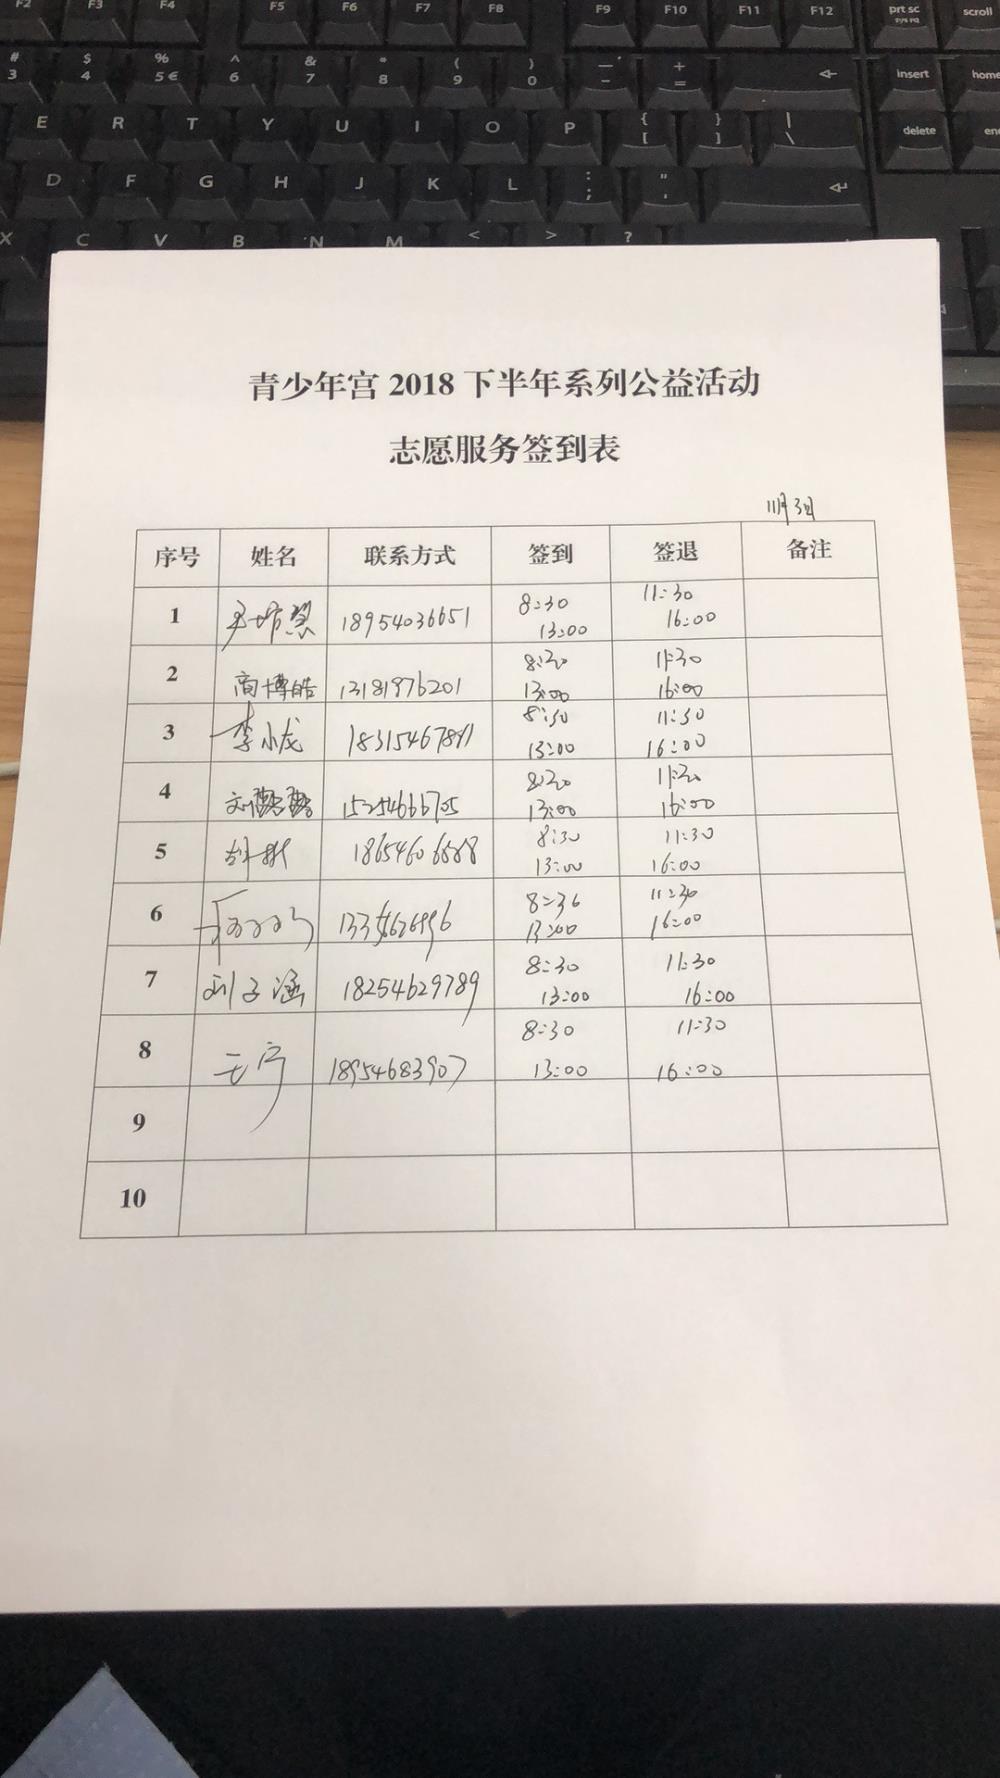 F2 F3 F4 F5 F6 F7 F8 F9 F10 F11 F12 prt sc scroll
sys rq
# $ % ^ & * ( ) — + insert home
3 4 5 € 6 7 8 9 0 - =
E R T Y U I O P { } | delete
[ ] \
D F G H J K L : "
; ,
X C V B N M < > ?
青少年宫 2018 下半年系列公益活动
志愿服务签到表
11月3日
序号 姓名 联系方式 签到 签退 备注
1 18954036651 8:30 11:30
13:00 16:00
2 商博皓 13181976201 8:30 11:30
13:00 16:00
3 李小龙 8:30 11:30
13:00 16:00
4 刘 8:30 11:30
13:00 16:00
5 8:30 11:30
13:00 16:00
6 8:30 11:30
13:00 16:00
7 刘子涵 18254629789 8:30 11:30
13:00 16:00
8 18954683907 8:30 11:30
13:00 16:00
9
10